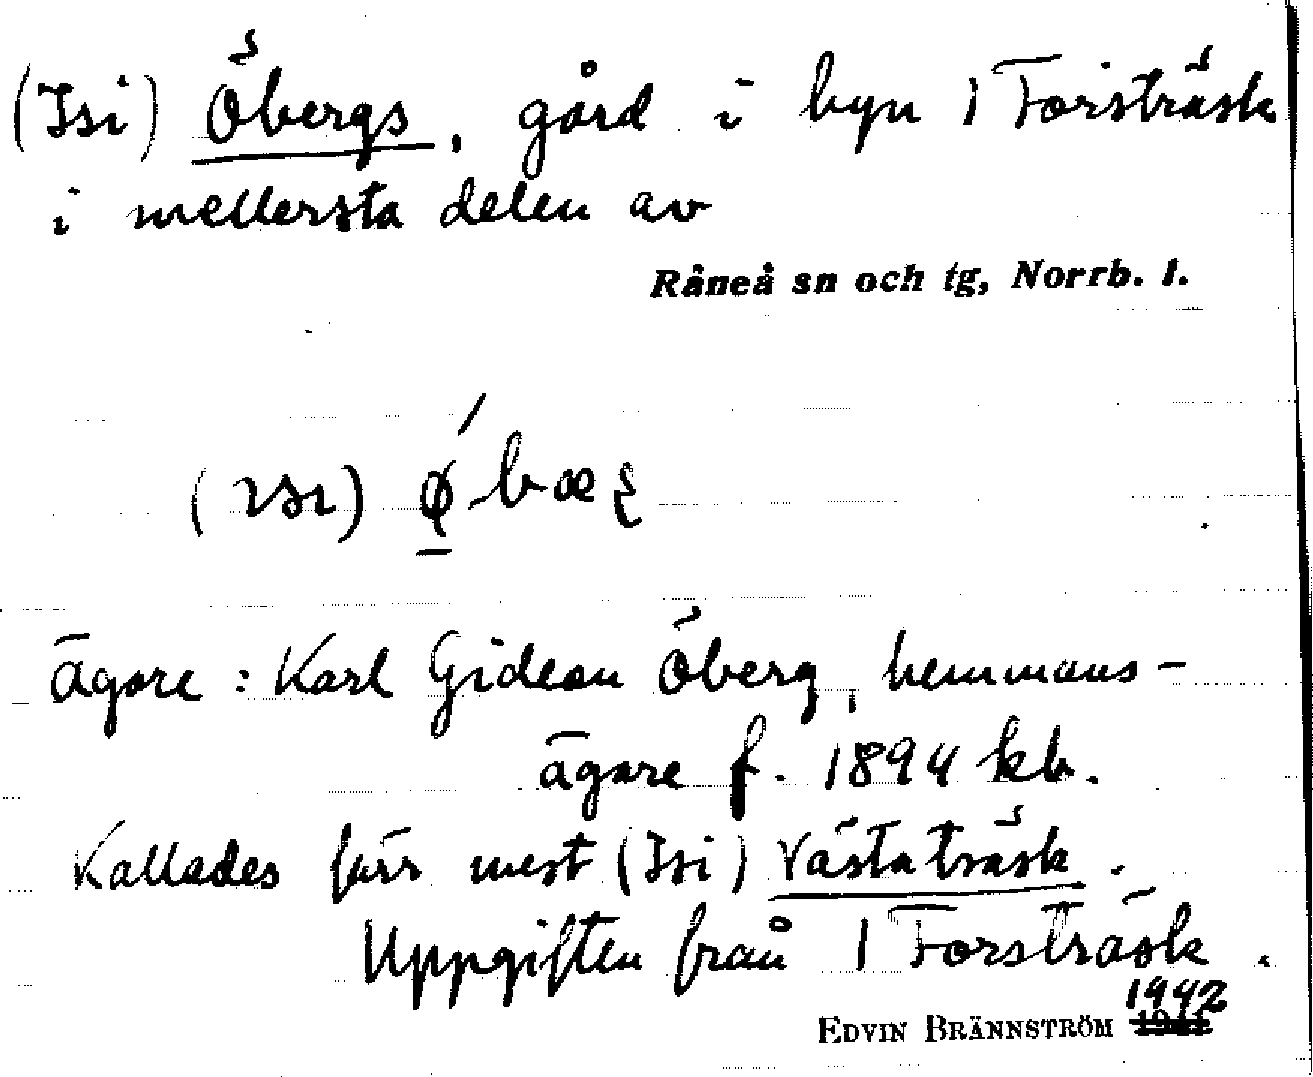 (Isi) Öbergs, gård i byn 1 Forsträsk
i mellersta delen av
Råneå sn och tg, Norrb. l.
(ısı)
Ägare: Karl Gideon Öberg, hemmans-
ägare f. 1894 kb.
Kallades förr mest (Isi) Västaträsk.
Uppgiften från 1 Forsträsk.
1942
EDVIN BRÄNNSTRÖM 1941